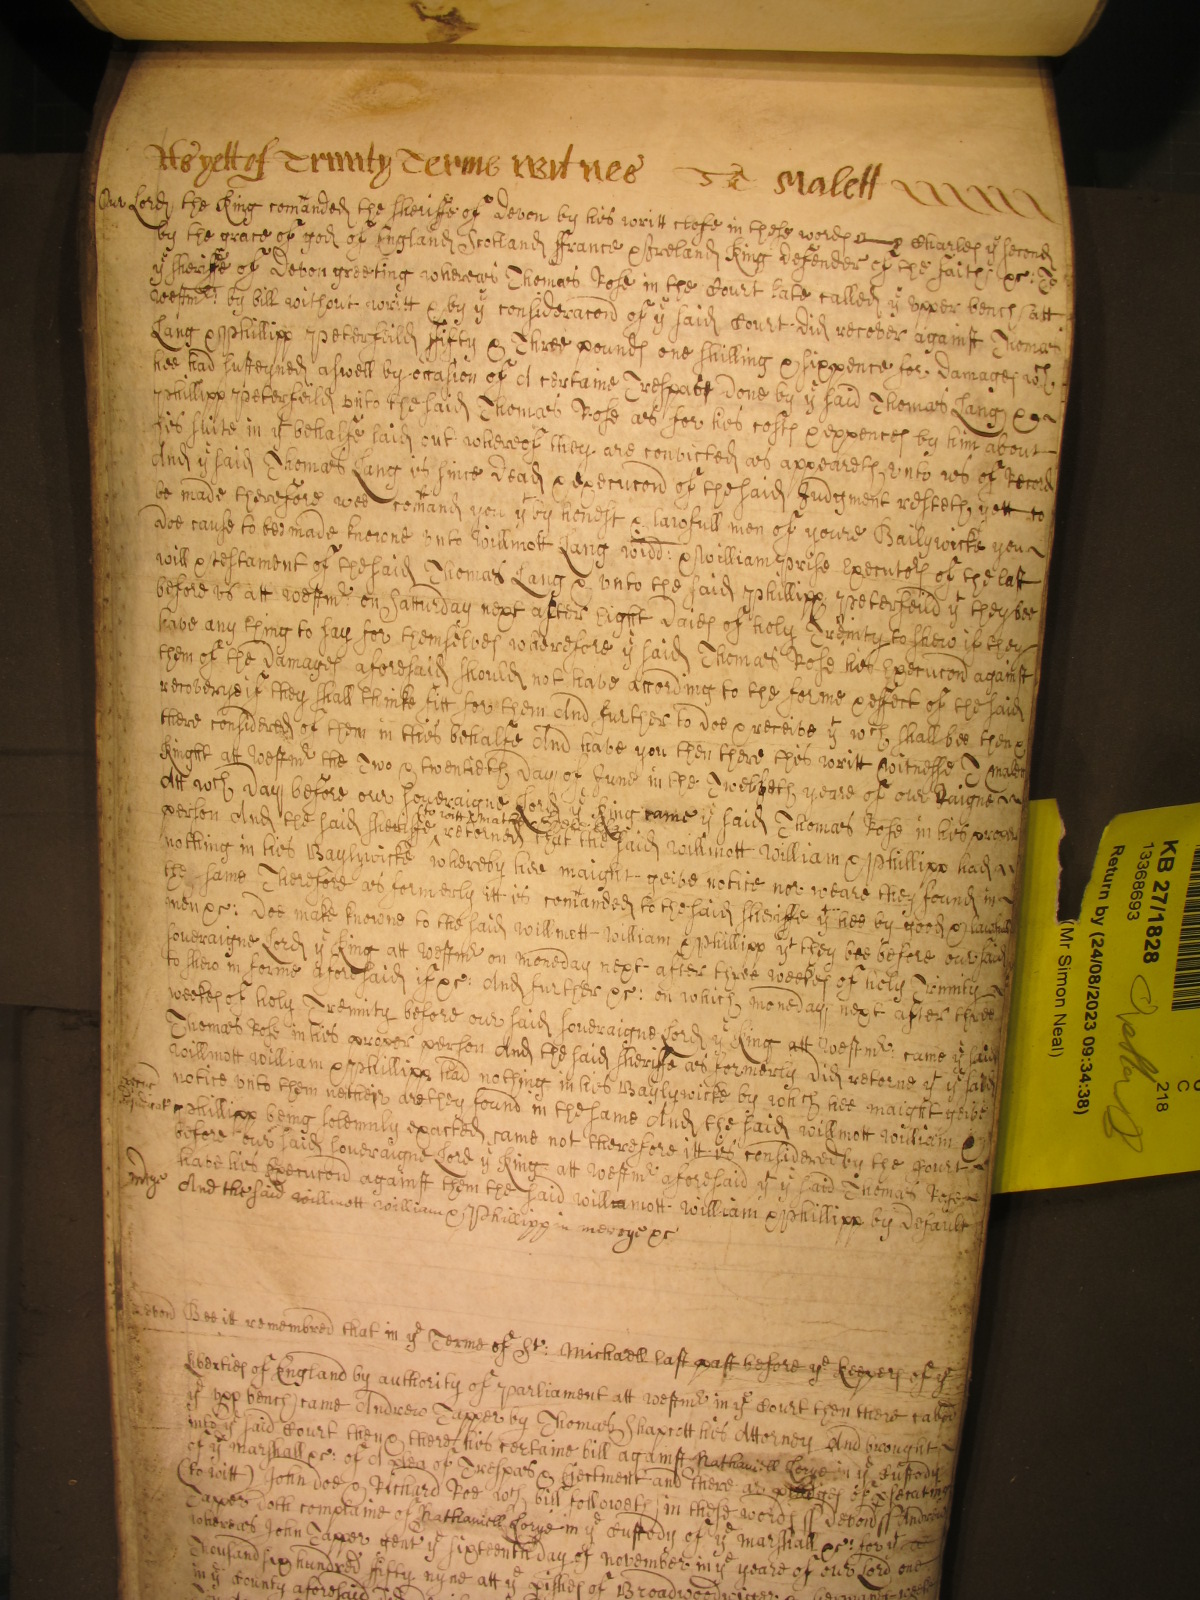 As yett of Trinity Terme Witnes Sr T Malett
Our Lord the King comanded the Sheriffe of Devon by his writt close in these words Charles ye second
by the grace of god of England Scotland ffrance & Ireland King defender of the faith &c: To
ye Sheriffe of Devon greeting whereas Thomas Rose in the Court late called ye upper bench att
Westmr: by bill without writt & by ye consideracon of ye said Court did recover against Thomas
Lang & Phillipp Peterfeild ffifty & Three pounds one shilling & sixpence for damages wch
hee had susteyned aswell by occasion of A certaine Trespass done by ye said Thomas Lang &
Phillipp Peterfeild unto the said Thomas Rose as for his costs & expences by him about
his suite in yt behalfe laid out whereof they are convicted as appeareth unto us of Record
And ye said Thomas Lang is since dead & execucon of the said Judgment resteth yett to
be made therefore wee comand you yt by honest & lawfull men of youre Bailywicke you
doe cause to bee made knowne unto Willmott Lang widd: & William Prise Executors of the last
will & testament of the said Thomas Lang & unto the said Phillipp Peterfeild yt they bee
before us att Westmr: on Saturday next after Eight daies of holy Trinity to shew if they
have any thing to say for themselves wherefore ye said Thomas Rose his Execucon against
them of the damages aforesaid should not have according to the forme & effect of the said
recoverye if they shall thinke fitt for them And further to doe & receive yt wch shall bee then &
there considered of them in this behalfe And have you then there this writt Witnesse T Malett
Knight att Westmr the Two & twentieth day of June in the Twelveth yeare of our Raigne
Att wch day before our Soveraigne Lord ye King came ye said Thomas Rose in his proper
person And the said Sheriffe returned that the said Willmott William & Phillipp had
nothing in his Baylywicke whereby hee maight geive notice nor weare they found in
the same Therefore as formerly itt is comanded to the said Sheriffe yt hee by good & lawfull
men &c: doe make knowne to the said Willmott William & Phillipp yt they bee before our said
Soveraigne Lord ye King att Westmr on Moneday next after three weekes of holy Trinnity
to shew in forme aforesaid if &c: And further &c: on which Moneday next after three
weekes of holy Trinnity before our said Soveraigne Lord ye King att Westmr: came ye said
Thomas Rose in his proper person And the said Sheriffe as formerly did returne yt ye said
Willmott William & Phillipp had nothing in his Baylywicke by which hee maight geive
notice unto them neither are they found in the same And the said Willmott William &
Phillipp being solemnly exacted came not therefore itt is considered by the Court
before our said Soveraigne Lord ye King att Westmr aforesaid yt ye said Thomas Rose
have his Execucon against them the said Willmott William & Phillipp by default
mercye And the said Willmott William & Phillipp in mercye &c
Devon Bee it remembred that in ye Terme of St: Michaell last past before ye keepers of ye
liberties of England by authority of Parliament att Westmr in ye Court then there called
ye upp bench came Andrew Tapper by Thomas Shapcott his Attorney And brought
into ye said Court then & there his certaine bill against Nathaniell Corye in ye Custody
of ye Marshall &c: of A plea of Trespas & Ejectment and there are pledges of prosecating
(to witt) John Doe & Richard Roe wch bill followeth in these words ss Devon ss Andrew
Tapper doth complaine of Nathaniell Corye in ye Custody of ye Marshall &c: for yt
whereas John Tapper gent ye sixteenth day of November in ye yeare of our Lord one
Thousand six hundred ffifty nyne att ye pishe of Broadwoodwidger
in ye County aforesaid
KB 27/1828
13368693
Return by (24/08/2023 09:34:38)
(Mr Simon Neal)
C
218